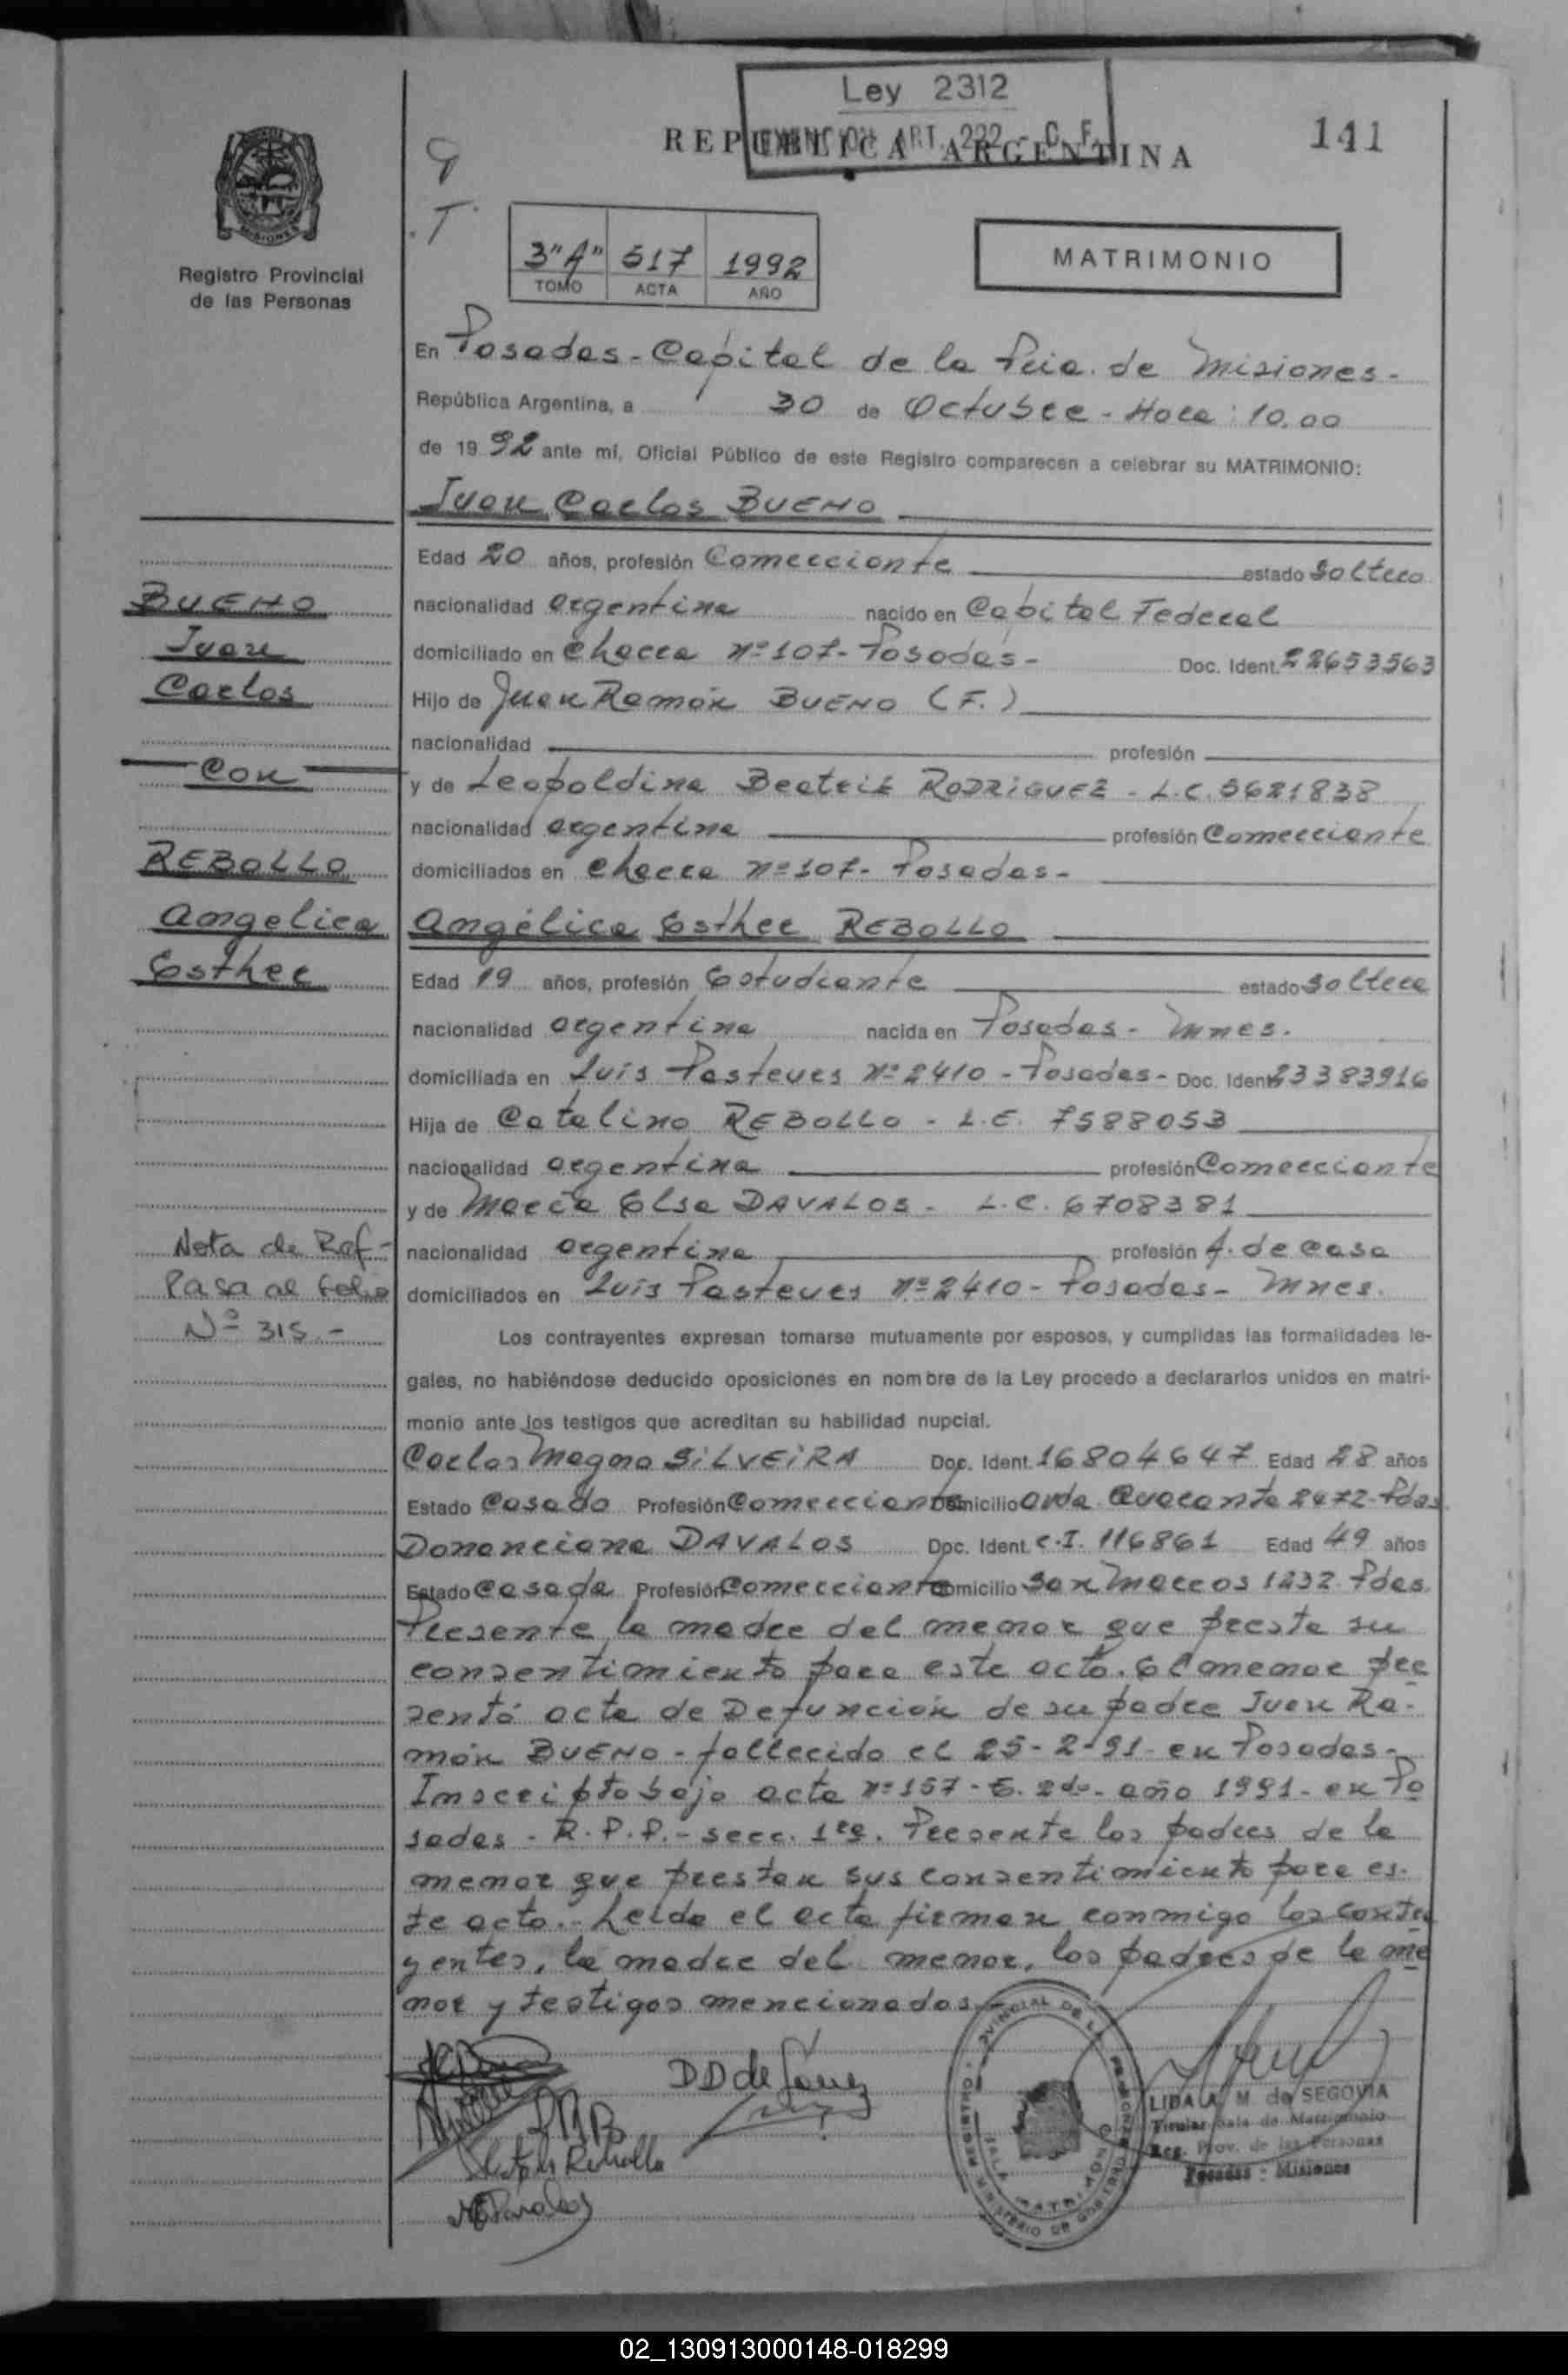 Ley 2312
EXENCION ART. 222 - C. F.
REPUBLICA ARGENTINA
141
MISIONES
Registro Provincial
de las Personas
3"A" 517 1992
TOMO ACTA AÑO
MATRIMONIO
En Posadas - Capital de la Pcia. de Misiones -
República Argentina, a 30 de Octubre - Hora: 10,00
de 19 92 ante mí, Oficial Público de este Registro comparecen a celebrar su MATRIMONIO:
Juan Carlos BUENO
Edad 20 años, profesión Comerciante estado Soltero
BUENO
nacionalidad argentina nacido en Capital Federal
Juan
domiciliado en Chacra nº 107 - Posadas - Doc. Ident. 22653563
Carlos
Hijo de Juan Ramón BUENO (F.)
nacionalidad profesión
Con
y de Leopoldina Beatriz RODRIGUEZ - L.C. 5621838
nacionalidad argentina profesión Comerciante
REBOLLO
domiciliados en Chacra nº 107 - Posadas -
Angelica
Angélica Esther REBOLLO
Esther
Edad 19 años, profesión Estudiante estado soltera
nacionalidad argentina nacida en Posadas - Mnes.
domiciliada en Luis Pasteues nº 2410 - Posadas - Doc. Ident. 23383916
Hija de Catalino REBOLLO - L.E. 7588053
nacionalidad argentina profesión Comerciante
y de María Elsa DAVALOS - L.C. 6708381
Nota de Ref-
nacionalidad argentina profesión A. de casa
Pasa al folio
domiciliados en Luis Pasteues nº 2410 - Posadas - Mnes.
Nº 315 -
Los contrayentes expresan tomarse mutuamente por esposos, y cumplidas las formalidades le-
gales, no habiéndose deducido oposiciones en nombre de la Ley procedo a declararlos unidos en matri-
monio ante los testigos que acreditan su habilidad nupcial.
Carlos Magno SILVEIRA Doc. Ident. 16804647 Edad 28 años
Estado Casado Profesión Comerciante Domicilio Avda. Quaranta 2472 - Pdas
Donanciana DAVALOS Doc. Ident. C.I. 116861 Edad 49 años
Estado Casada Profesión Comerciante Domicilio San Marcos 1232 - Pdas.
Presente la madre del menor que presta su
consentimiento para este acto. El menor pre
sentó acta de Defunción de su padre Juan Ra-
món BUENO - fallecido el 25-2-91 - en Posadas -
Inscripto bajo acta nº 157 - T. 2do - año 1991 - en Po
sadas - R.P.P. - secc. 1ra. Presente los padres de la
menor que prestan sus consentimiento para es-
te acto. - Leída el acta firman conmigo los contra
yentes, la madre del menor, los padres de la me
nor y testigos mencionados -
DD de
Rebollo
LIDA A. M. de SEGOVIA
Titular Sala de Matrimonio
Reg. Prov. de las Personas
Posadas - Misiones
02_130913000148-018299